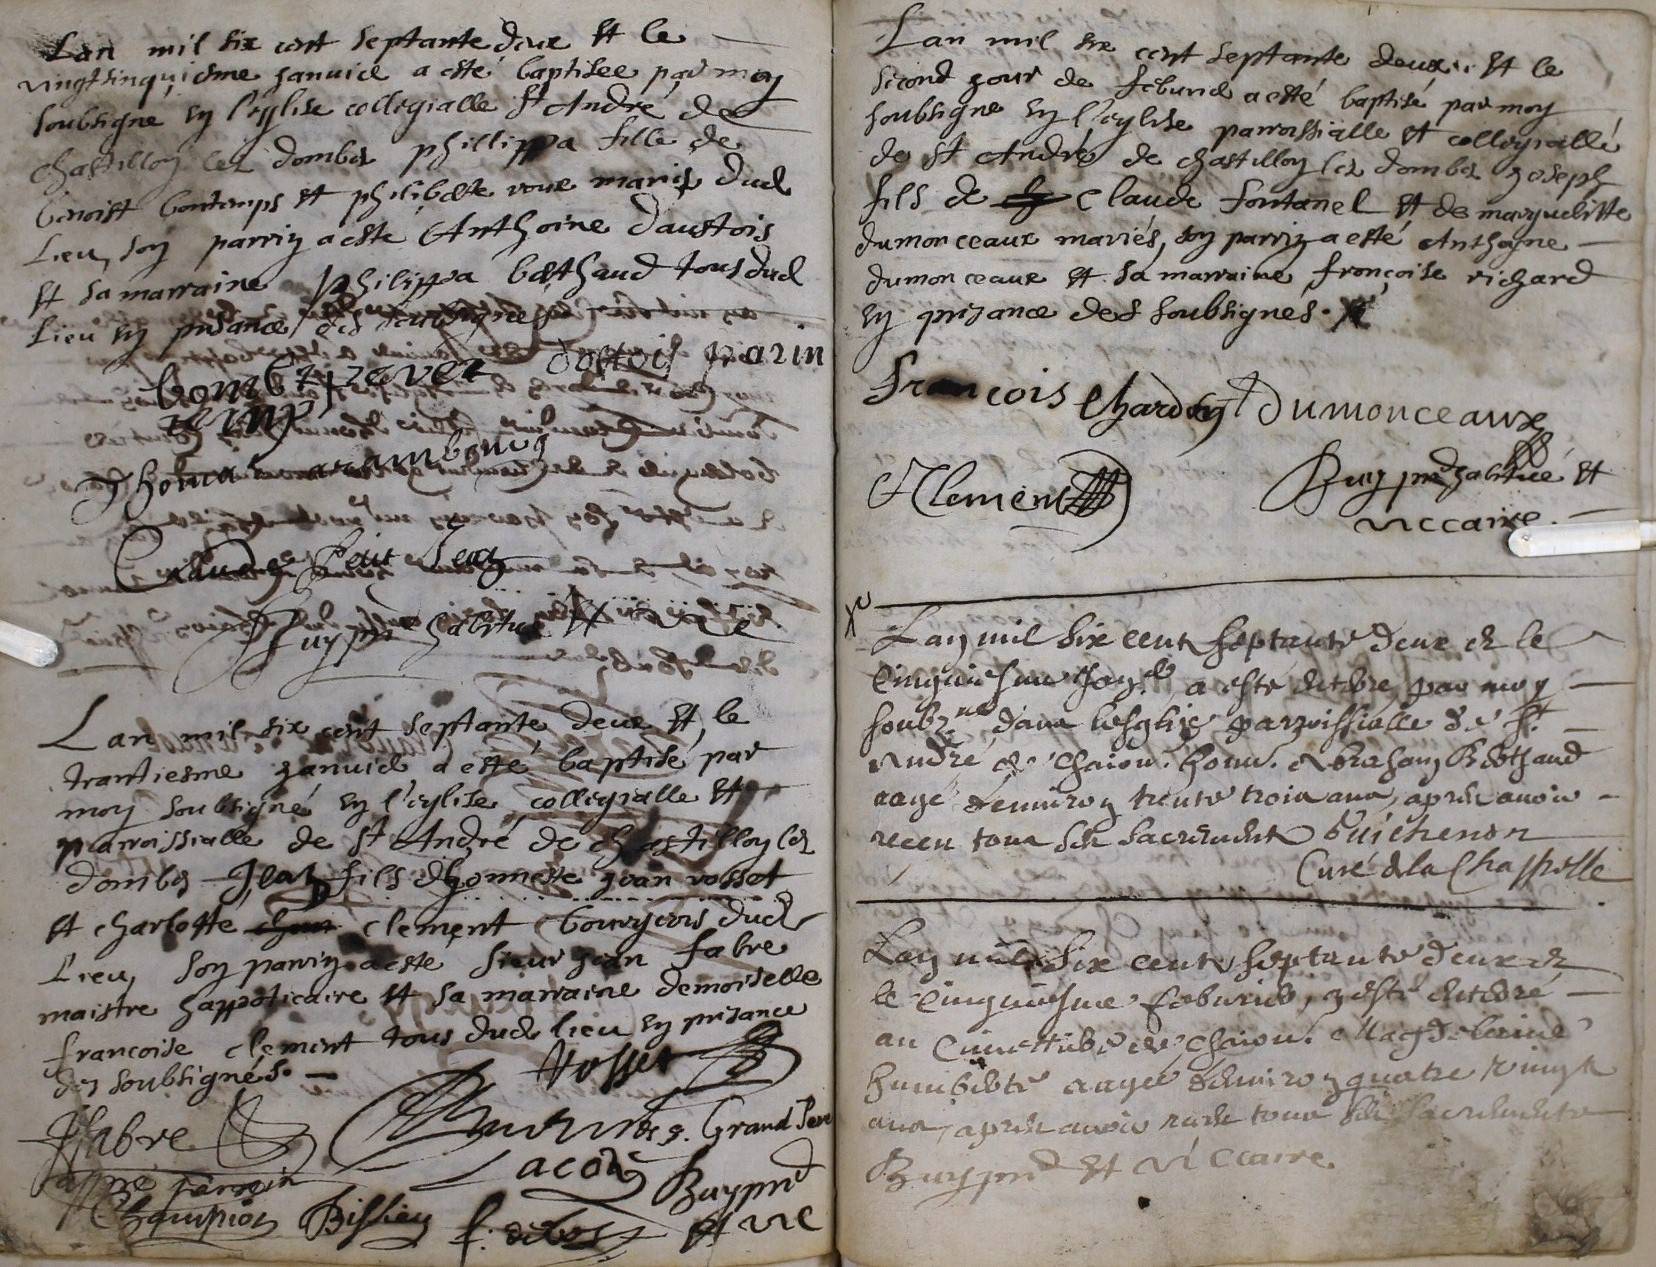 Lan mil six cent septante deux et le
vingtsinquiesme janvier a esté baptisee par moy
soubsigné en l'eglise collegialle St André de
chastillon les dombes phillippa fille de
benoist bontemps et philiberte voux mariés dud
lieu, son parrin a esté Anthoine daustois
et sa marraine philippa berthaud tous dud
lieu en presance des soubsignes
dostois parin
Claude petit Jean
Buy pre habitué et vre
Lan mil six cent septante deux et le
trantiesme janvier a esté baptisé par
moy soubsigné en l'eglise collegialle et
parroissialle de st André de chastillon les
dombes Jean fils dhonneste jean vosset
et charlotte clement bourgeois dud
lieu, son parrin a este sieur jean fabre
maistre happoticaire et sa marraine demoiselle
francoise clement tous dud lieu en presance
des soubsignés.
Vosset
Jfabre
Grand Pere
Lacoin
Perrein
Buy prd
Champion Bissieu
et vre
Lan mil six cent septante deux et le
second jour de feburier a esté baptisé par moy
soubsigne en l'eglise parroissialle et collegialle
de st André de chastillon les dombes joseph
fils de Claude fontanel et de marguelitte
dumonceaux mariés, son parrin a esté Anthoine
dumonceaux et sa marraine françoise richard
en presance des soubsignés.
François Chardon Dumonceaux
Clement
Buy prd habitué et
viccaire.
Lan mil six cent septante deux et le
cinquiesme a esté enterre par moy
soubz.né dans lesglise parroissialle de St
André de Chaon. honn. Abraham Berthaud
aagé denviron trente trois ans, apres avoir
receu tous ses sacrements Guichenon
Curé de la Chappelle
Lan mil six cent septante deux et
le cinquiesme feburier, a esté enterré
au cimettiere de Chaon. Magdeleine
humberte aagee denviron quatre vingt
ans, apres avoir receu tous ses sacrements
Buy prd et viccaire.